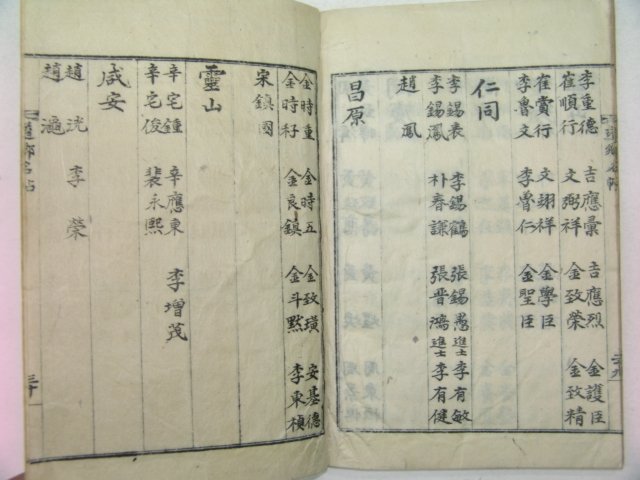 李重德 吉應彙 吉應烈 金護臣
崔順行 文弼祥 金致榮 金致精
崔賞行 文翊祥 金學臣
李魯文 李曾仁 金聖臣
仁同
李錫泰 李錫鶴 張錫愚進士 李有敏
李錫鳳 朴春謙 張晋鴻進士 李有健
趙鳳
昌原
金時重 金時五 金致璜 安基德
金時秄 金良鎮 金斗黙 李東楨
宋鎮國
靈山
辛宅鍾 辛應東 李增茂
辛宅俊 裴永熙
咸安
趙洸 李榮
趙